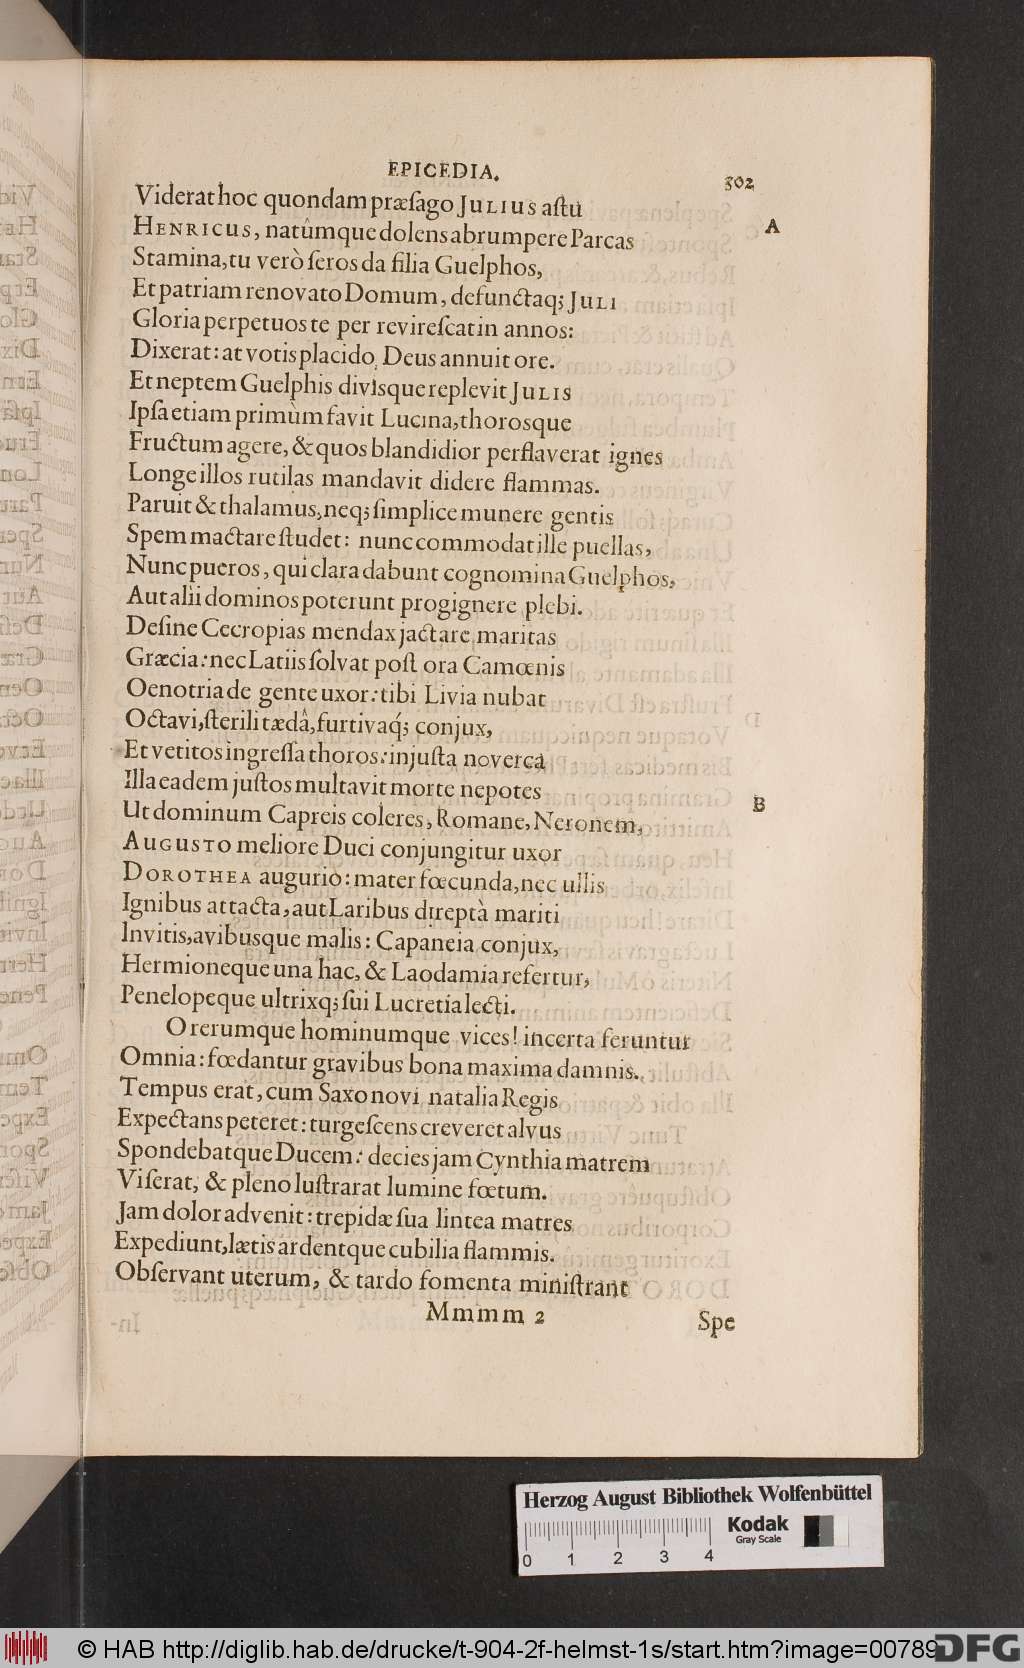 EPICEDIA.
302
Viderat hoc quondam præsago JULIUS astu
A
HENRICUS, natûmque dolens abrumpere Parcas
Stamina, tu verò seros da filia Guelphos,
Et patriam renovato Domum, defunctaq; JULI
Gloria perpetuos te per revirescat in annos:
Dixerat: at votis placido Deus annuit ore.
Et neptem Guelphis divisque replevit JULIS
Ipsa etiam primùm favit Lucina, thorosque
Fructum agere, & quos blandidior perflaverat ignes
Longe illos rutilas mandavit didere flammas.
Paruit & thalamus, neq; simplice munere gentis
Spem mactare studet: nunc commodat ille puellas,
Nunc pueros, qui clara dabunt cognomina Guelphos,
Aut alii dominos poterunt progignere plebi.
Desine Cecropias mendax jactare maritas
Græcia: nec Latiis solvat post ora Camœnis
Oenotria de gente uxor: tibi Livia nubat
Octavi, sterili tædâ, furtivaq́; conjux,
Et vetitos ingressa thoros: injusta noverca
Illa eadem justos multavit morte nepotes
Ut dominum Capreis coleres, Romane, Neronem,
B
AUGUSTO meliore Duci conjungitur uxor
DOROTHEA augurio: mater fœcunda, nec ullis
Ignibus attacta, aut Laribus direptà mariti
Invitis, avibusque malis: Capaneia conjux,
Hermioneque una hac, & Laodamia refertur,
Penelopeque ultrixq; sui Lucretia lecti.
O rerumque hominumque vices! incerta feruntur
Omnia: fœdantur gravibus bona maxima damnis.
Tempus erat, cum Saxo novi natalia Regis
Expectans peteret: turgescens creveret alvus
Spondebatque Ducem: decies jam Cynthia matrem
Viserat, & pleno lustrarat lumine fœtum.
Jam dolor advenit: trepidæ sua lintea matres
Expediunt, lætis ardentque cubilia flammis.
Observant uterum, & tardo fomenta ministrant
Mmmm 2
Spe
Herzog August Bibliothek Wolfenbüttel
Kodak
Gray Scale
0 1 2 3 4
© HAB http://diglib.hab.de/drucke/t-904-2f-helmst-1s/start.htm?image=00789
DFG